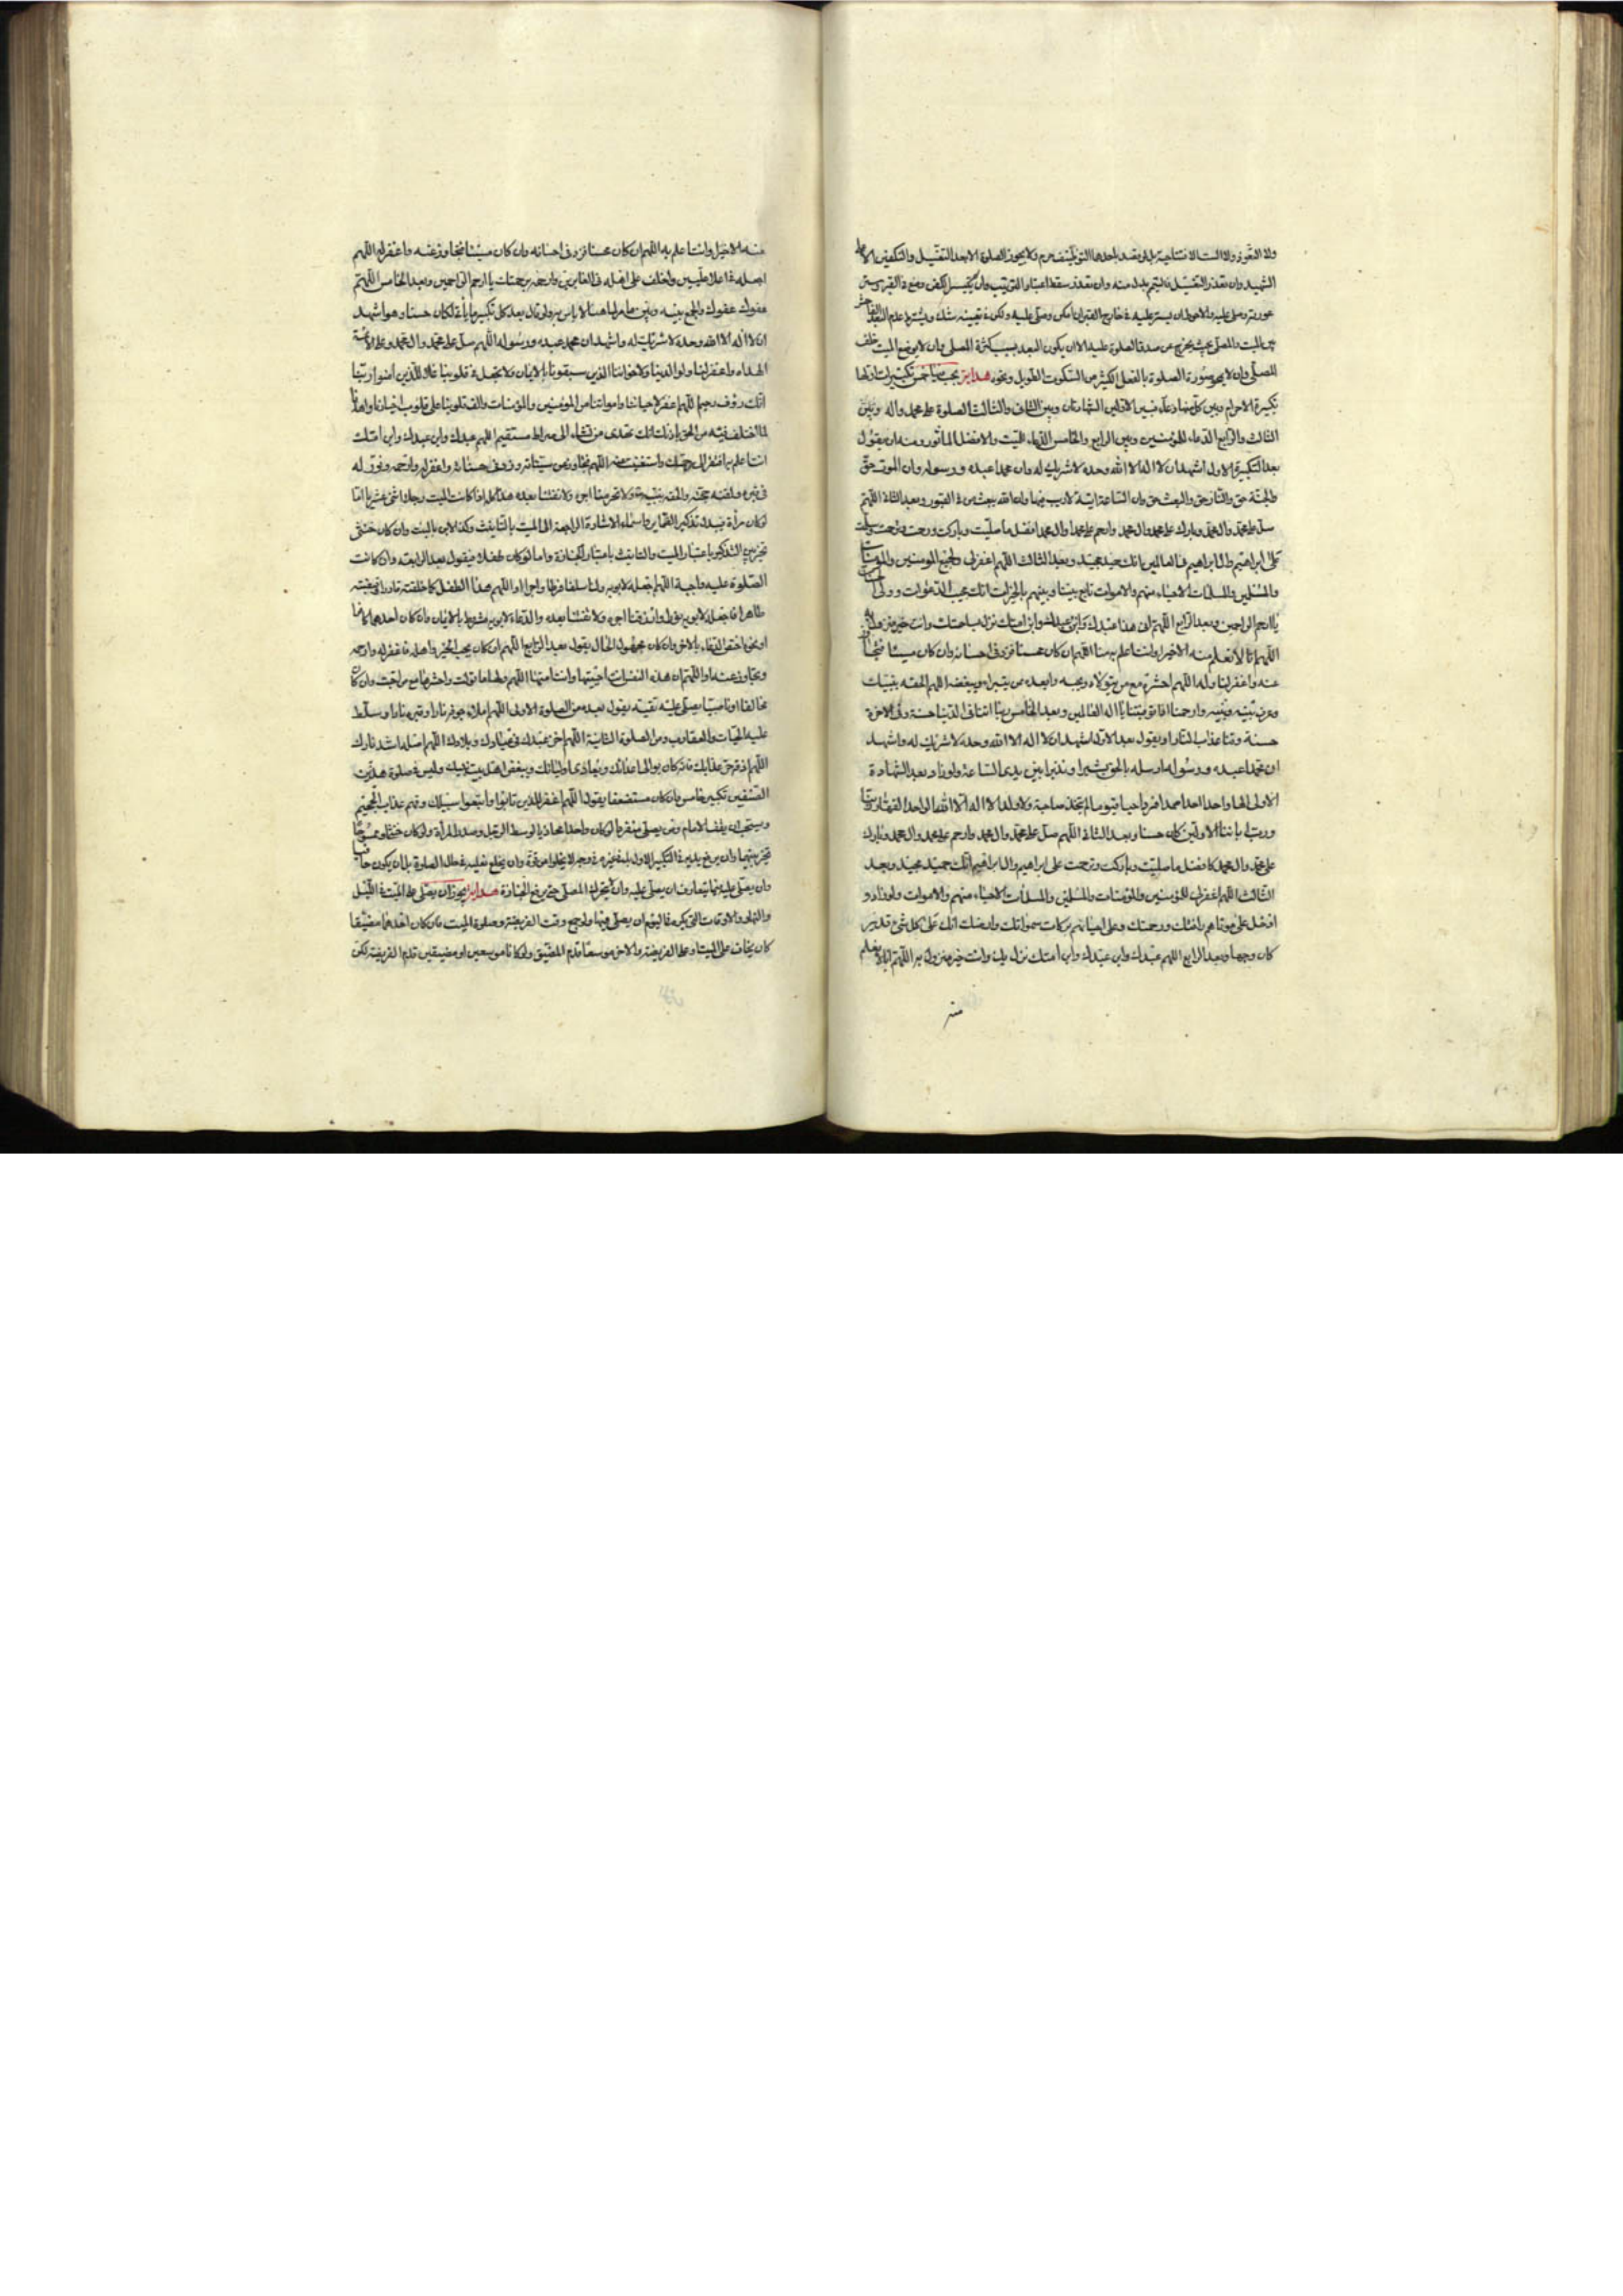 الشهيد وان تعذر التغسيل فالتيمم بدل منه وان تعذر سقط اعتبار الترتيب وان لم يتيسر الكفن وضع في القبر وستر
عورته وصلى عليه والاحوط ان يستر عليه في خارج القبر ان امكن وصلى عليه ولكن في تعيينه شك ويشترط عدم البعد الفاحش
بين الميت والمصلى بحيث يخرج عن صدق الصلوة عليه الا ان يكون البعد بسبب كثرة المصلى وان لا يوضع الميت خلف
المصلى وان لا يمحو صورة الصلوة بالفعل الكثير من السكوت الطويل ونحوه هداية يجب فيها خمس تكبيرات اولها
تكبيرة الاحرام وبين كل منها دعاء فبين الاولين الشهادتان وبين الثاني والثالث الصلوة على محمد واله وبين
الثالث والرابع الدعاء للمؤمنين وبين الرابع والخامس الدعاء للميت والافضل الماثور ومنه ان يقول
بعد التكبيرة الاولى اشهد ان لا اله الا الله وحده لا شريك له وان محمدا عبده ورسوله وان الموت حق
والجنة حق والنار حق والبعث حق وان الساعة اتية لا ريب فيها وان الله يبعث من في القبور وبعد الثاني اللهم
صل على محمد وال محمد وبارك على محمد وال محمد وارحم محمدا وال محمد افضل ما صليت وباركت ورحمت وترحمت وسلمت
على ابراهيم وال ابراهيم في العالمين انك حميد مجيد وبعد الثالث اللهم اغفر لي ولجميع المؤمنين والمؤمنات
والمسلمين والمسلمات الاحياء منهم والاموات تابع بيننا وبينهم بالخيرات انك مجيب الدعوات وولي
يا ارحم الراحمين وبعد الرابع اللهم ان هذا عبدك وابن عبدك وابن امتك نزل بساحتك وانت خير منزول به
اللهم انا لا نعلم منه الا خيرا وانت اعلم به منا اللهم ان كان محسنا فزد في احسانه وان كان مسيئا فتجاوز
عنه واغفر لنا وله اللهم احشره مع من يتولاه ويحبه وابعده ممن يتبراه ويبغضه اللهم الحقه بنبيك
وعرف بينه وبينه وارحمنا اذا توفيتنا يا اله العالمين وبعد الخامس ربنا اتنا في الدنيا حسنة وفي الاخرة
حسنة وقنا عذاب النار او يقول بعد الاول اشهد ان لا اله الا الله وحده لا شريك له واشهد
ان محمدا عبده ورسوله ارسله بالحق بشيرا ونذيرا بين يدي الساعة ولو زاد بعد الشهادة
الاولى الها واحدا احدا صمدا فردا حيا قيوما لم يتخذ صاحبة ولا ولدا لا اله الا الله الواحد القهار ربنا
ورب ابائنا الاولين كان حسنا وبعد الثاني اللهم صل على محمد وال محمد وارحم محمد وال محمد وبارك
على محمد وال محمد كافضل ما صليت وباركت وترحمت على ابراهيم وال ابراهيم انك حميد مجيد وبعد
الثالث اللهم اغفر للمؤمنين والمؤمنات والمسلمين والمسلمات الاحياء منهم والاموات ولو زاد و
ادخل على موتاهم رافتك ورحمتك وعلى احيائهم بركات سمواتك وارضك انك على كل شئ قدير
كان وجها وبعد الرابع اللهم عبدك وابن عبدك وابن امتك نزل بك وانت خير منزول به اللهم انا لا نعلم
منه
منه الا خيرا وانت اعلم به اللهم ان كان محسنا فزد في احسانه وان كان مسيئا فتجاوز عنه واغفر له اللهم
اجعله في اعلا عليين واخلف على اهله في الغابرين وارحمه برحمتك يا ارحم الراحمين وبعد الخامس اللهم
عفوك عفوك والجمع بينه وبين ما مر لا باس به ولو قال بعد كل تكبير ما ياتي لكان حسنا وهو اشهد
ان لا اله الا الله وحده لا شريك له واشهد ان محمد عبده ورسوله اللهم صل على محمد وال محمد وعلى الائمة
الهداة واغفر لنا ولوالدينا ولاخواننا الذين سبقونا بالايمان ولا تجعل في قلوبنا غلا للذين امنوا ربنا
انك رؤف رحيم اللهم اغفر لاحيائنا وامواتنا من المؤمنين والمؤمنات والف قلوبنا على قلوب اخيارنا واهدنا
لما اختلف فيه من الحق باذنك انك تهدي من تشاء الى صراط مستقيم اللهم عبدك وابن عبدك وابن امتك
انت اعلم به افتقر الى رحمتك واستغنيت عنه اللهم تجاوز عن سيئاته وزد في حسناته واغفر له وارحمه ونور له
في قبره ولقنه حجته والحقه بنبيه ولا تحرمنا اجره ولا تفتنا بعده هذا كله اذا كانت الميت رجلا اثنى عشريا اما
لو كان مرأة فيبدل تذكير الضماير واسماء الاشارة الراجعة الى الميت بالتانيث وكذا الابن بالبنت وان كان خنثى
تخير بين التذكير باعتبار الميت والتانيث باعتبار الجنازة واما لو كان طفلا فيقول بعد الرابعة وان كانت
الصلوة عليه واجبة اللهم اجعله لابويه ولنا سلفا وفرطا واجرا او اللهم هذا الطفل كما خلقته قادرا وقبضته
طاهرا فاجعله لابويه نورا وارزقنا اجره ولا تفتنا بعده والدعاء لابويه مشروط بالايمان وان كان احدهما كافرا
او نحوه اختص الدعاء بالاخر وان كان مجهول الحال يقول بعد الرابع اللهم ان كان يحب الخير واهله فاغفر له وارحمه
وتجاوز عنه او اللهم ان هذه النفس انت احييتها وانت امتها اللهم ولها ما تولت واحشرها مع من احبت وان كان
مخالفا او ناصبيا يصلى عليه تقية يقول بعد من الصلوة الاولى اللهم املاء جوفه نارا وقبره نارا وسلط
عليه الحيات والعقارب ومن الصلوة الثانية اللهم اخز عبدك في عبادك وبلادك اللهم اصله اشد نارك
اللهم اذقه حر عذابك فانه كان يوالي اعدائك ويعادي اوليائك ويبغض اهل بيت نبيك وليس في صلوة هذين
الصنفين تكبير خامس وان كان مستضعفا يقول اللهم اغفر للذين تابوا واتبعوا سبيلك وقهم عذاب الجحيم
ويستحب ان يقف الامام ومن يصلى منفردا لو كان واحدا محاذيا لوسط الرجل وصدر المرأة ولو كان خنثى او ممسوحا
تخير بينهما وان يرفع يديه في التكبير الاول بل في غيره وجه لا يخلوا من قوة وان يخلع نعليه في حال الصلوة بل ان يكون حافيا
وان يصلى عليه فيما يتعارف ان يصلى عليه وان لا يتحرك المصلى حتى يرفع الجنازة هداية يجوز ان يصلى على الميت في الليل
والنهار والاوقات التي يكره فيها ان يصلى فيها ولو اجتمع وقت الفريضة وصلوة الميت فان كان احدهما مضيقا
كان يخاف على الميت او على الفريضة والاخر موسعا قدم المضيق ولو كانا موسعين او مضيقين قدم الفريضة لكن